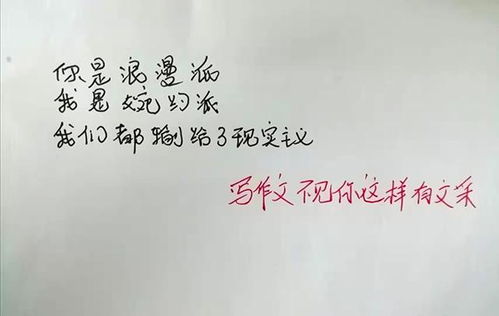 你是浪漫派
我是婉约派
我们都输给了现实主义
写作文不见你这样有文采